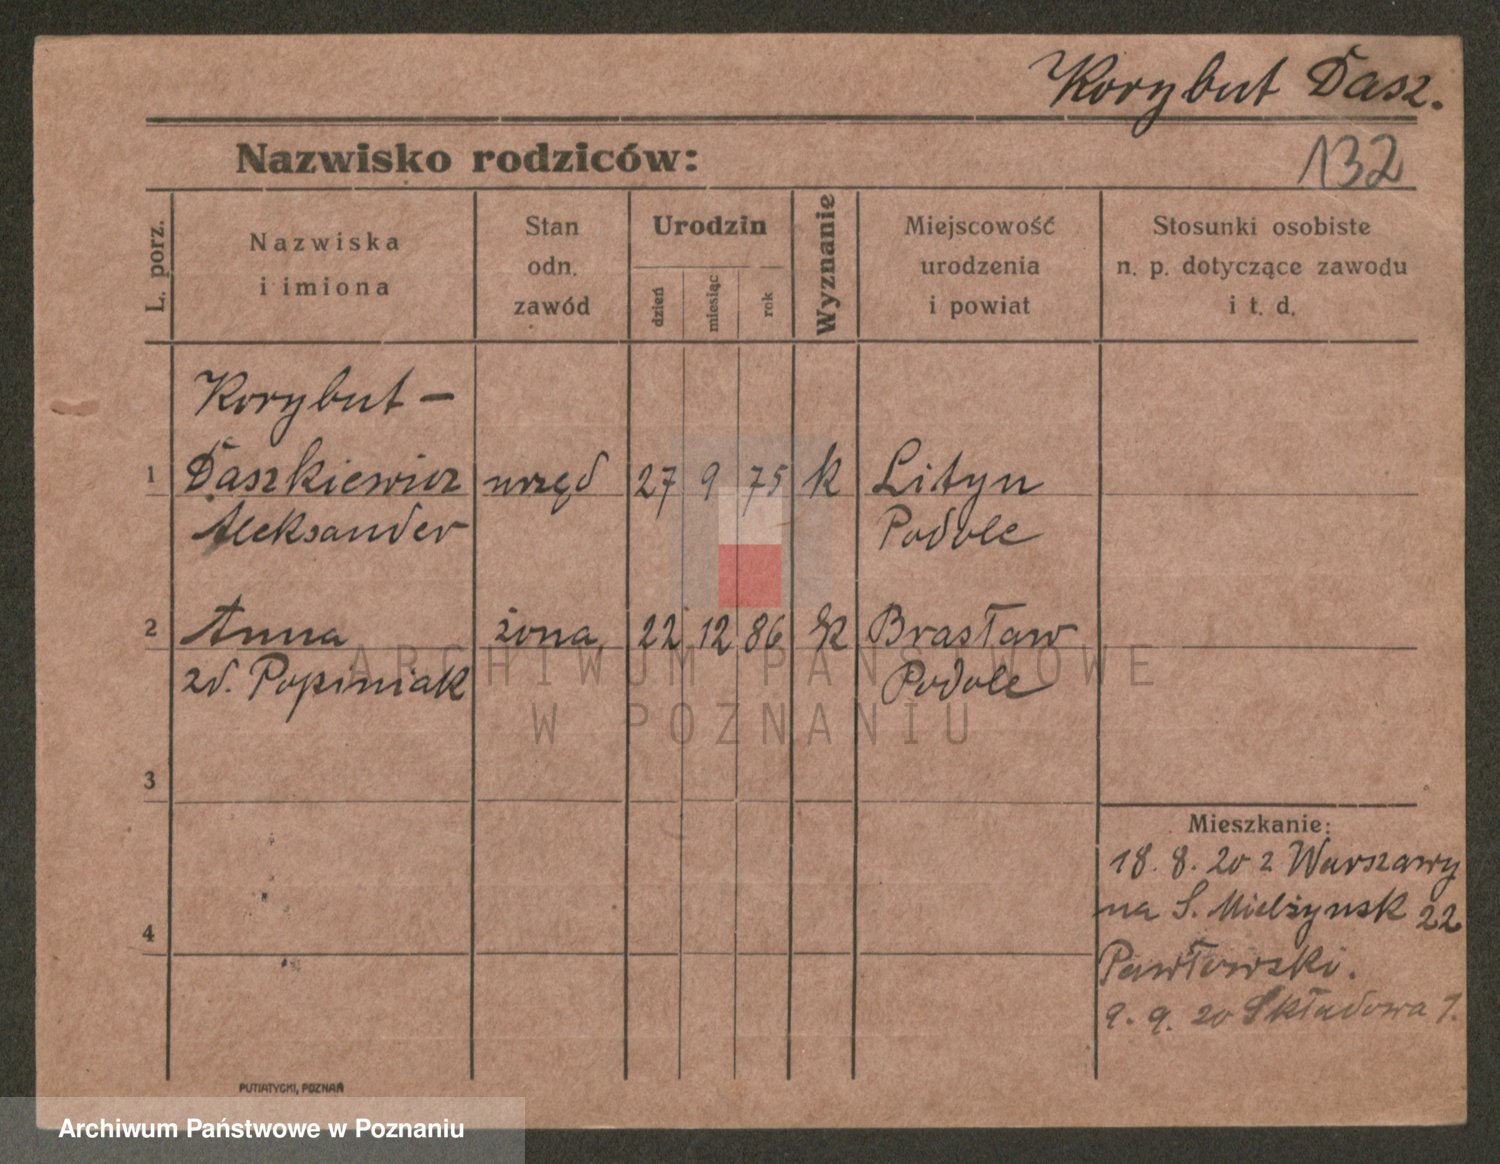 Korybut Dasz.
Nazwisko rodziców:
132
L. porz.
Nazwiska
i imiona
Stan
odn.
zawód
Urodzin
dzień
miesiąc
rok
Wyznanie
Miejscowość
urodzenia
i powiat
Stosunki osobiste
n. p. dotyczące zawodu
i t. d.
Korybut –
1 Daszkiewicz urzęd 27 9 75 k Lityn
Aleksander Podole
2 Anna żona 22 12 86 k Brasław
zd. Popiniak Podole
3
4
Mieszkanie:
18. 8. 20 z Warszawy
na S. Mielżynsk 22
Pawłowski.
9. 9. 20 Składowa 1.
PUTIATYCKI, POZNAŃ
ARCHIWUM PAŃSTWOWE
W POZNANIU
Archiwum Państwowe w Poznaniu